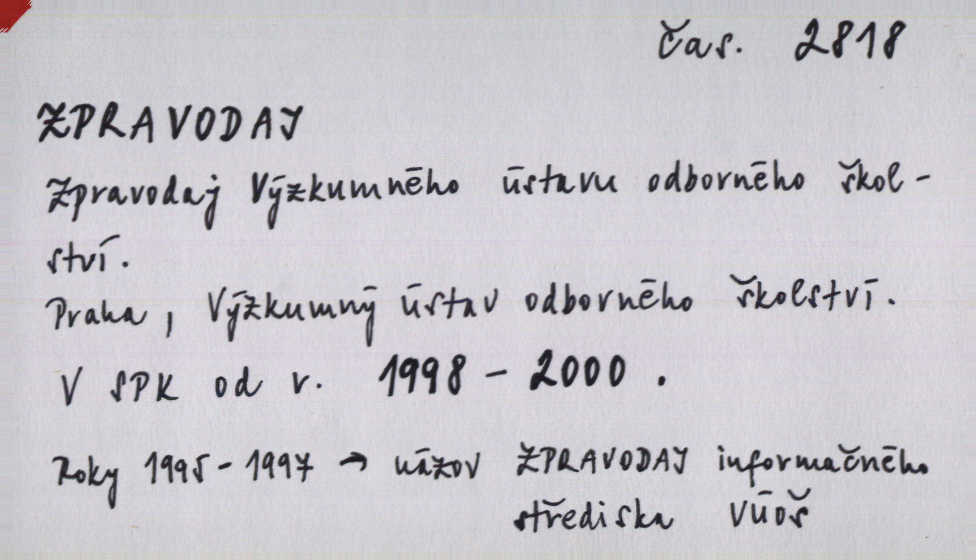 čas. 2818
ZPRAVODAJ
Zpravodaj Výzkumného ústavu odborného škol-
ství.
Praha, Výzkumný ústav odborného školství.
V SPK od r. 1998 - 2000.
Roky 1995-1997 → názov ZPRAVODAJ informačného
střediska VÚOŠ